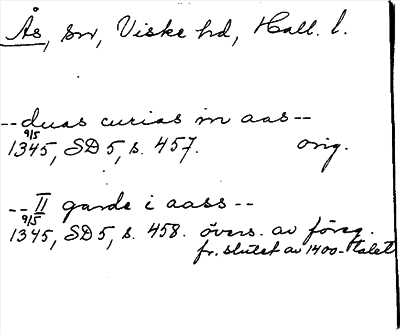 Ås, sn, Viske hd, Hall. l.
--duas curias in aas--
9/5
1345, SD 5, s. 457. orig.
--II garde i aass--
9/5
1345, SD 5, s. 458. övers. av föreg.
fr. slutet av 1400-talet